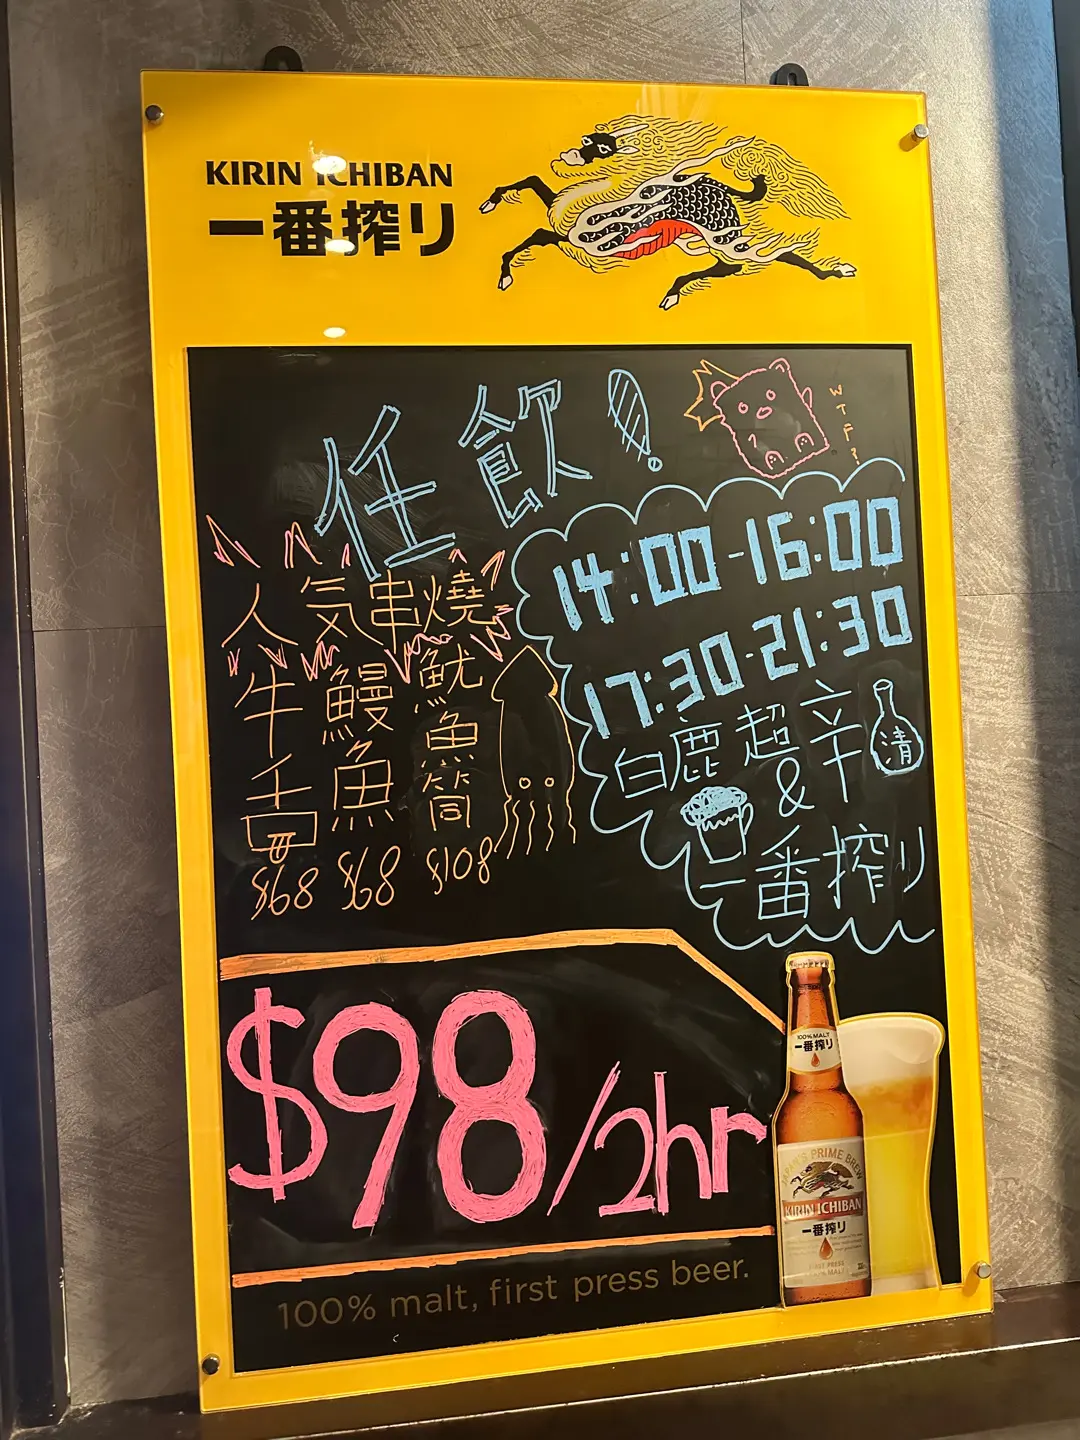 KIRIN ICHIBAN
一番搾り
任飲!
WTF?
14:00-16:00
17:30-21:30
白鹿超辛 清
&
一番搾り
人気串燒
牛舌 $68
鰻魚 $68
魷魚筒 $108
$98/2hr
100% MALT
一番搾り
JAPAN'S PRIME BREW
KIRIN ICHIBAN
一番搾り
100% malt, first press beer.